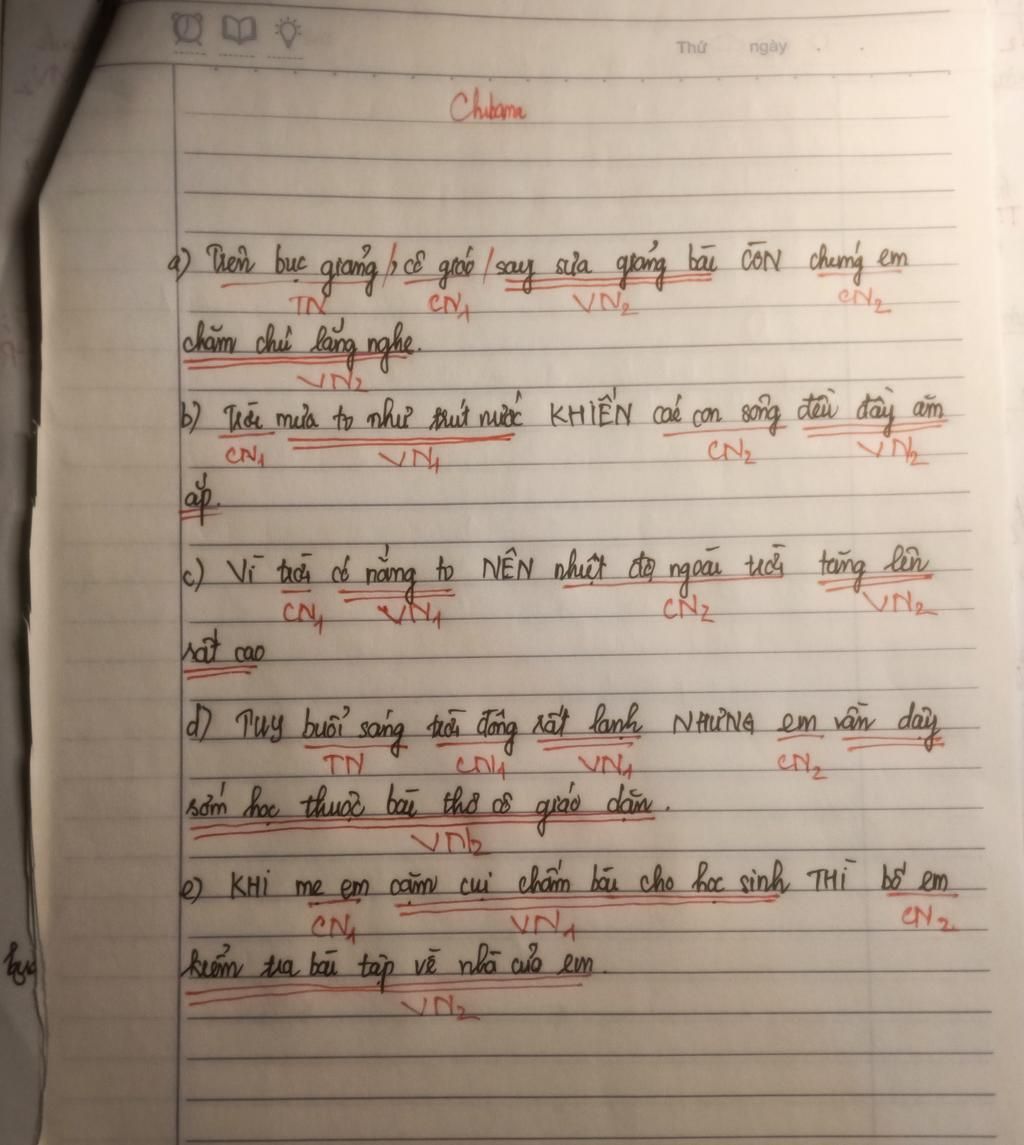 Thứ ngày . .
a) Trên bục giảng / , cô giáo / say sưa giảng bài CÒN chúng em
TN CN1 VN2 CN2
chăm chú lắng nghe.
VN2
b) Trời mưa to như trút nước KHIẾN các con sông đều đầy ăm
CN1 VN1 CN2 VN2
ắp.
c) Vì trời có nắng to NÊN nhiệt độ ngoài trời tăng lên
CN1 VN1 CN2 VN2
rất cao
d) TUY buổi sáng trời đông rất lạnh NHƯNG em vẫn dậy
TN CN1 VN1 CN2
sớm học thuộc bài thơ cô giáo dặn.
VN2
e) KHI mẹ em cặm cụi chấm bài cho học sinh THÌ bố em
CN1 VN1 CN2
kiểm tra bài tập về nhà của em.
VN2